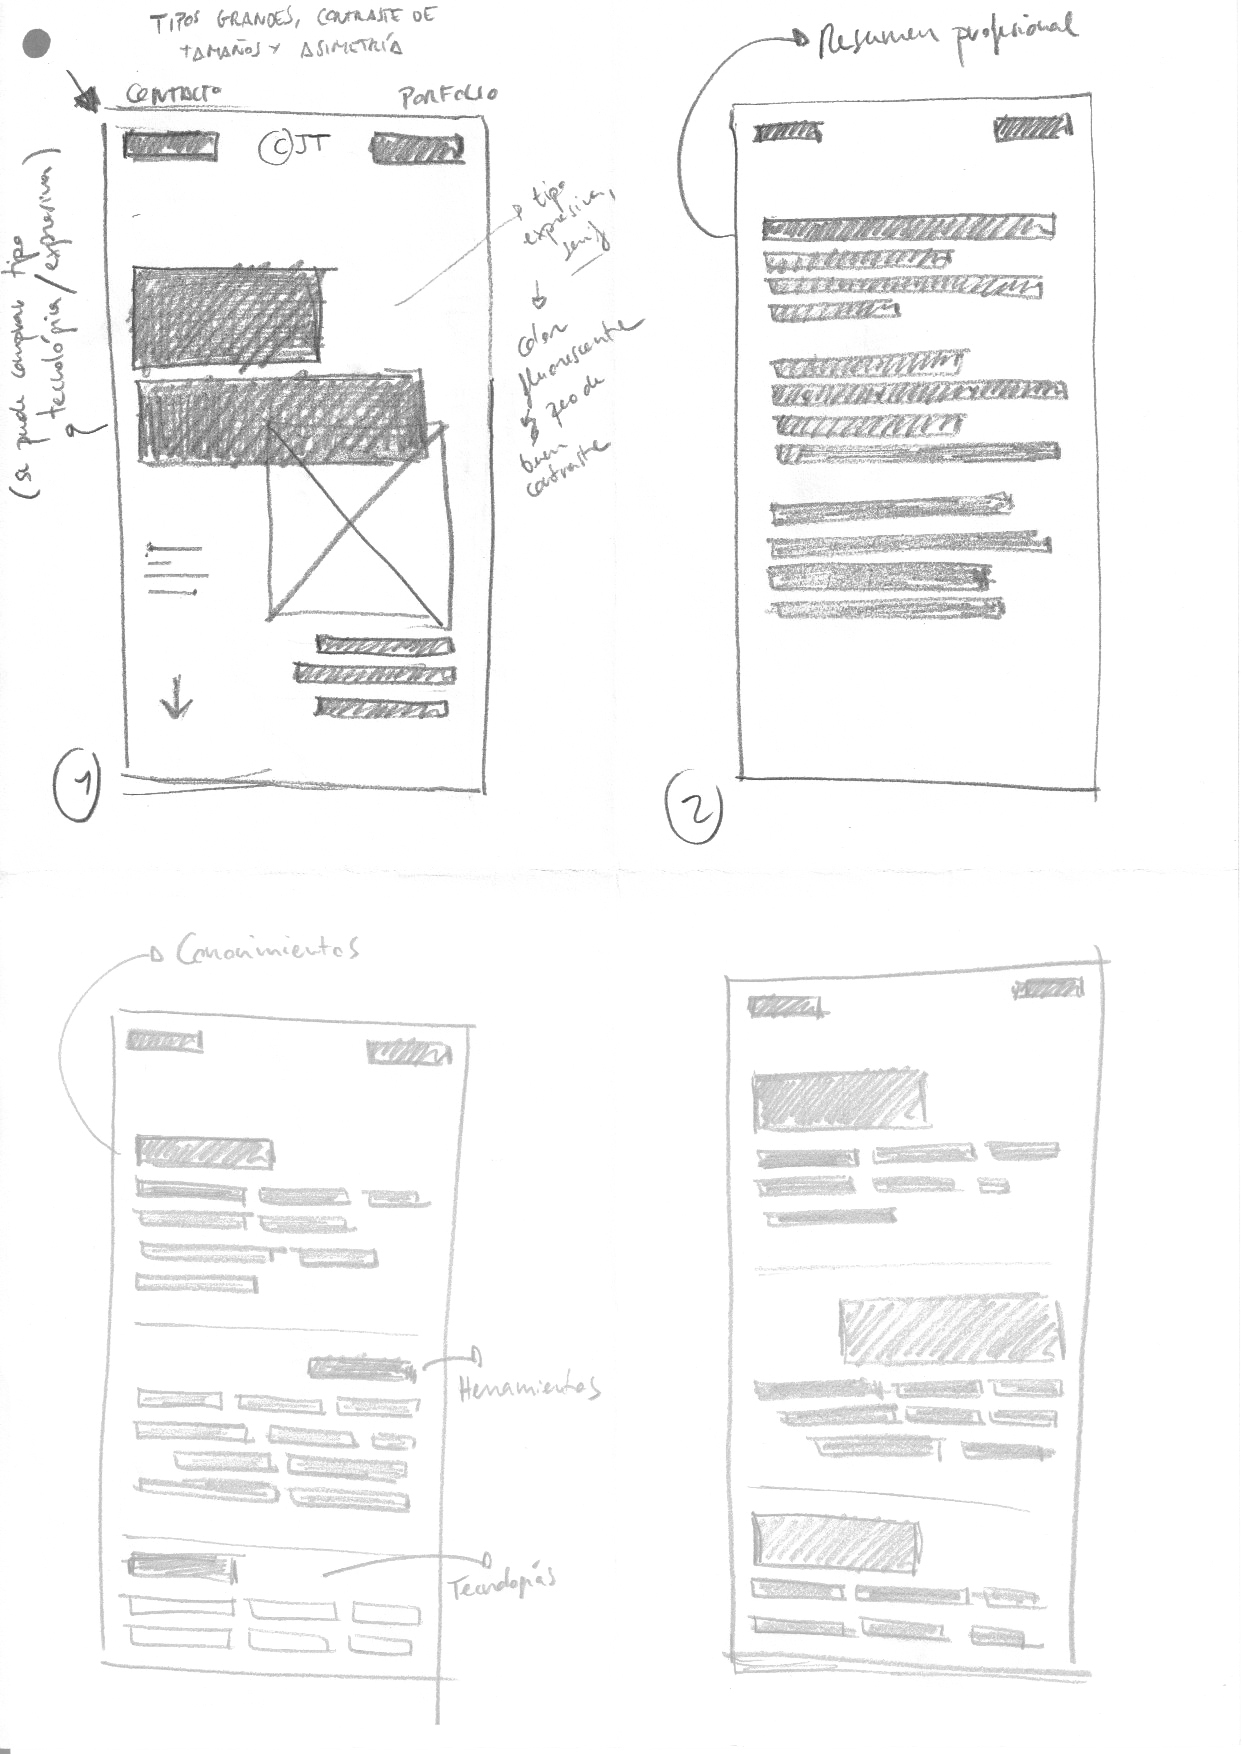 TIPOS GRANDES, CONTRASTE DE
TAMAÑOS Y ASIMETRÍA
CONTACTO
PORFOLIO
© JT
(se puede comprar tipo
tecnológica/expresiva)
tipo
expresiva,
serif
color
fluorescente
buen
contraste
1
Resumen profesional
2
Conocimientos
Herramientas
Tecnologías